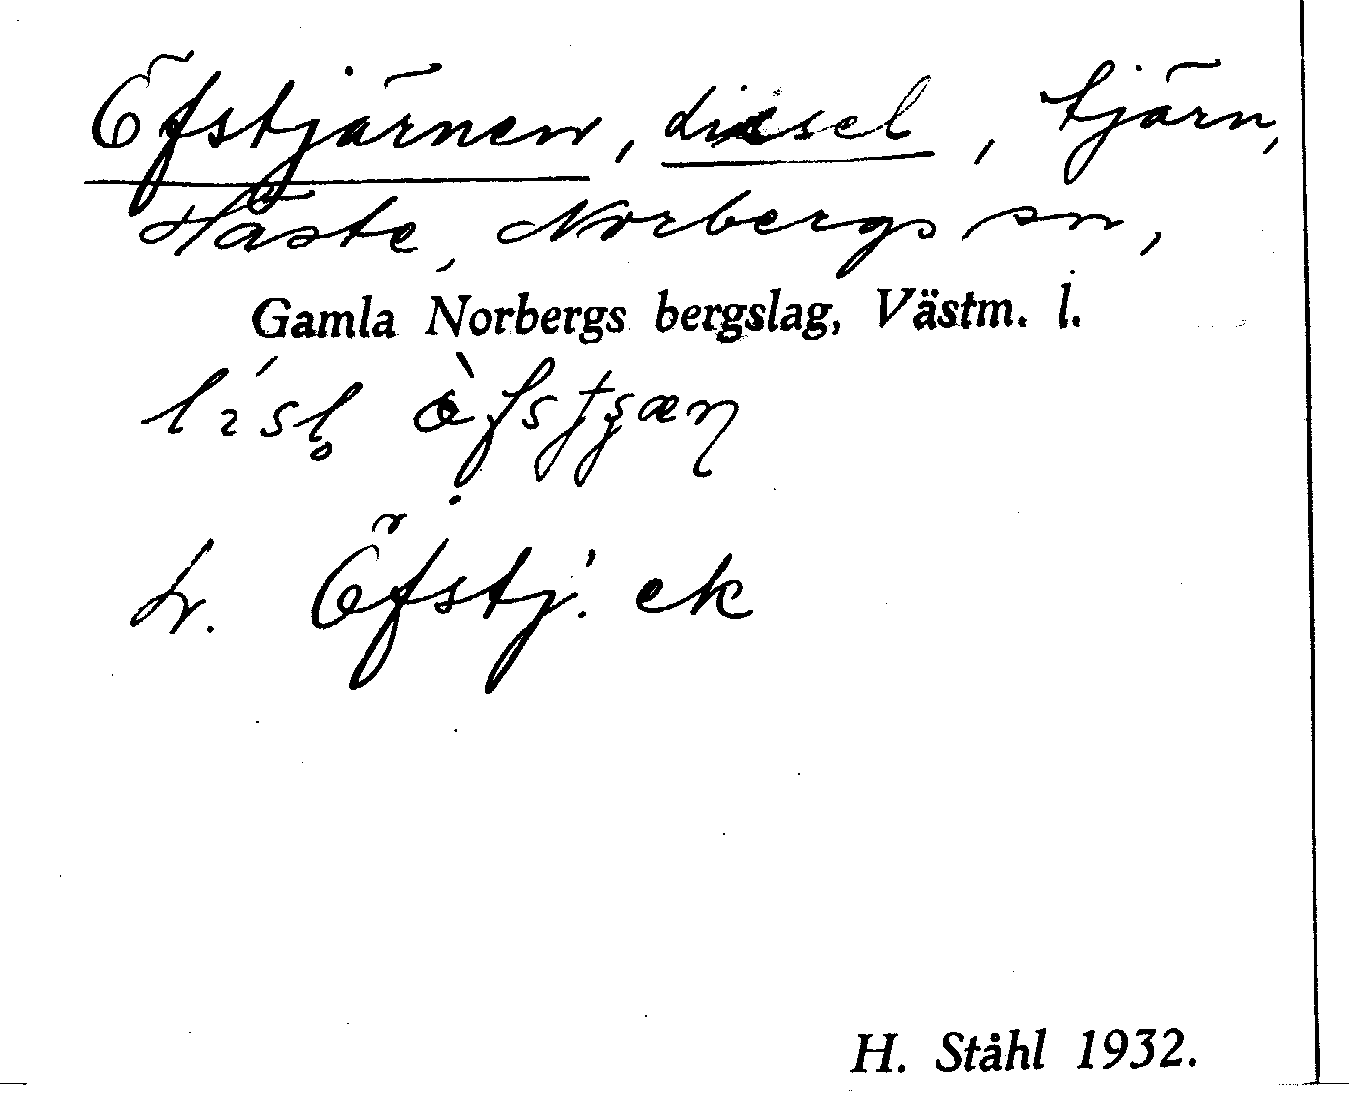 Öfstjärnen, disel, tjärn,
Håste, Norbergs sn,
Gamla Norbergs bergslag, Västm. l.
Öfstj. ek
H. Ståhl 1932.